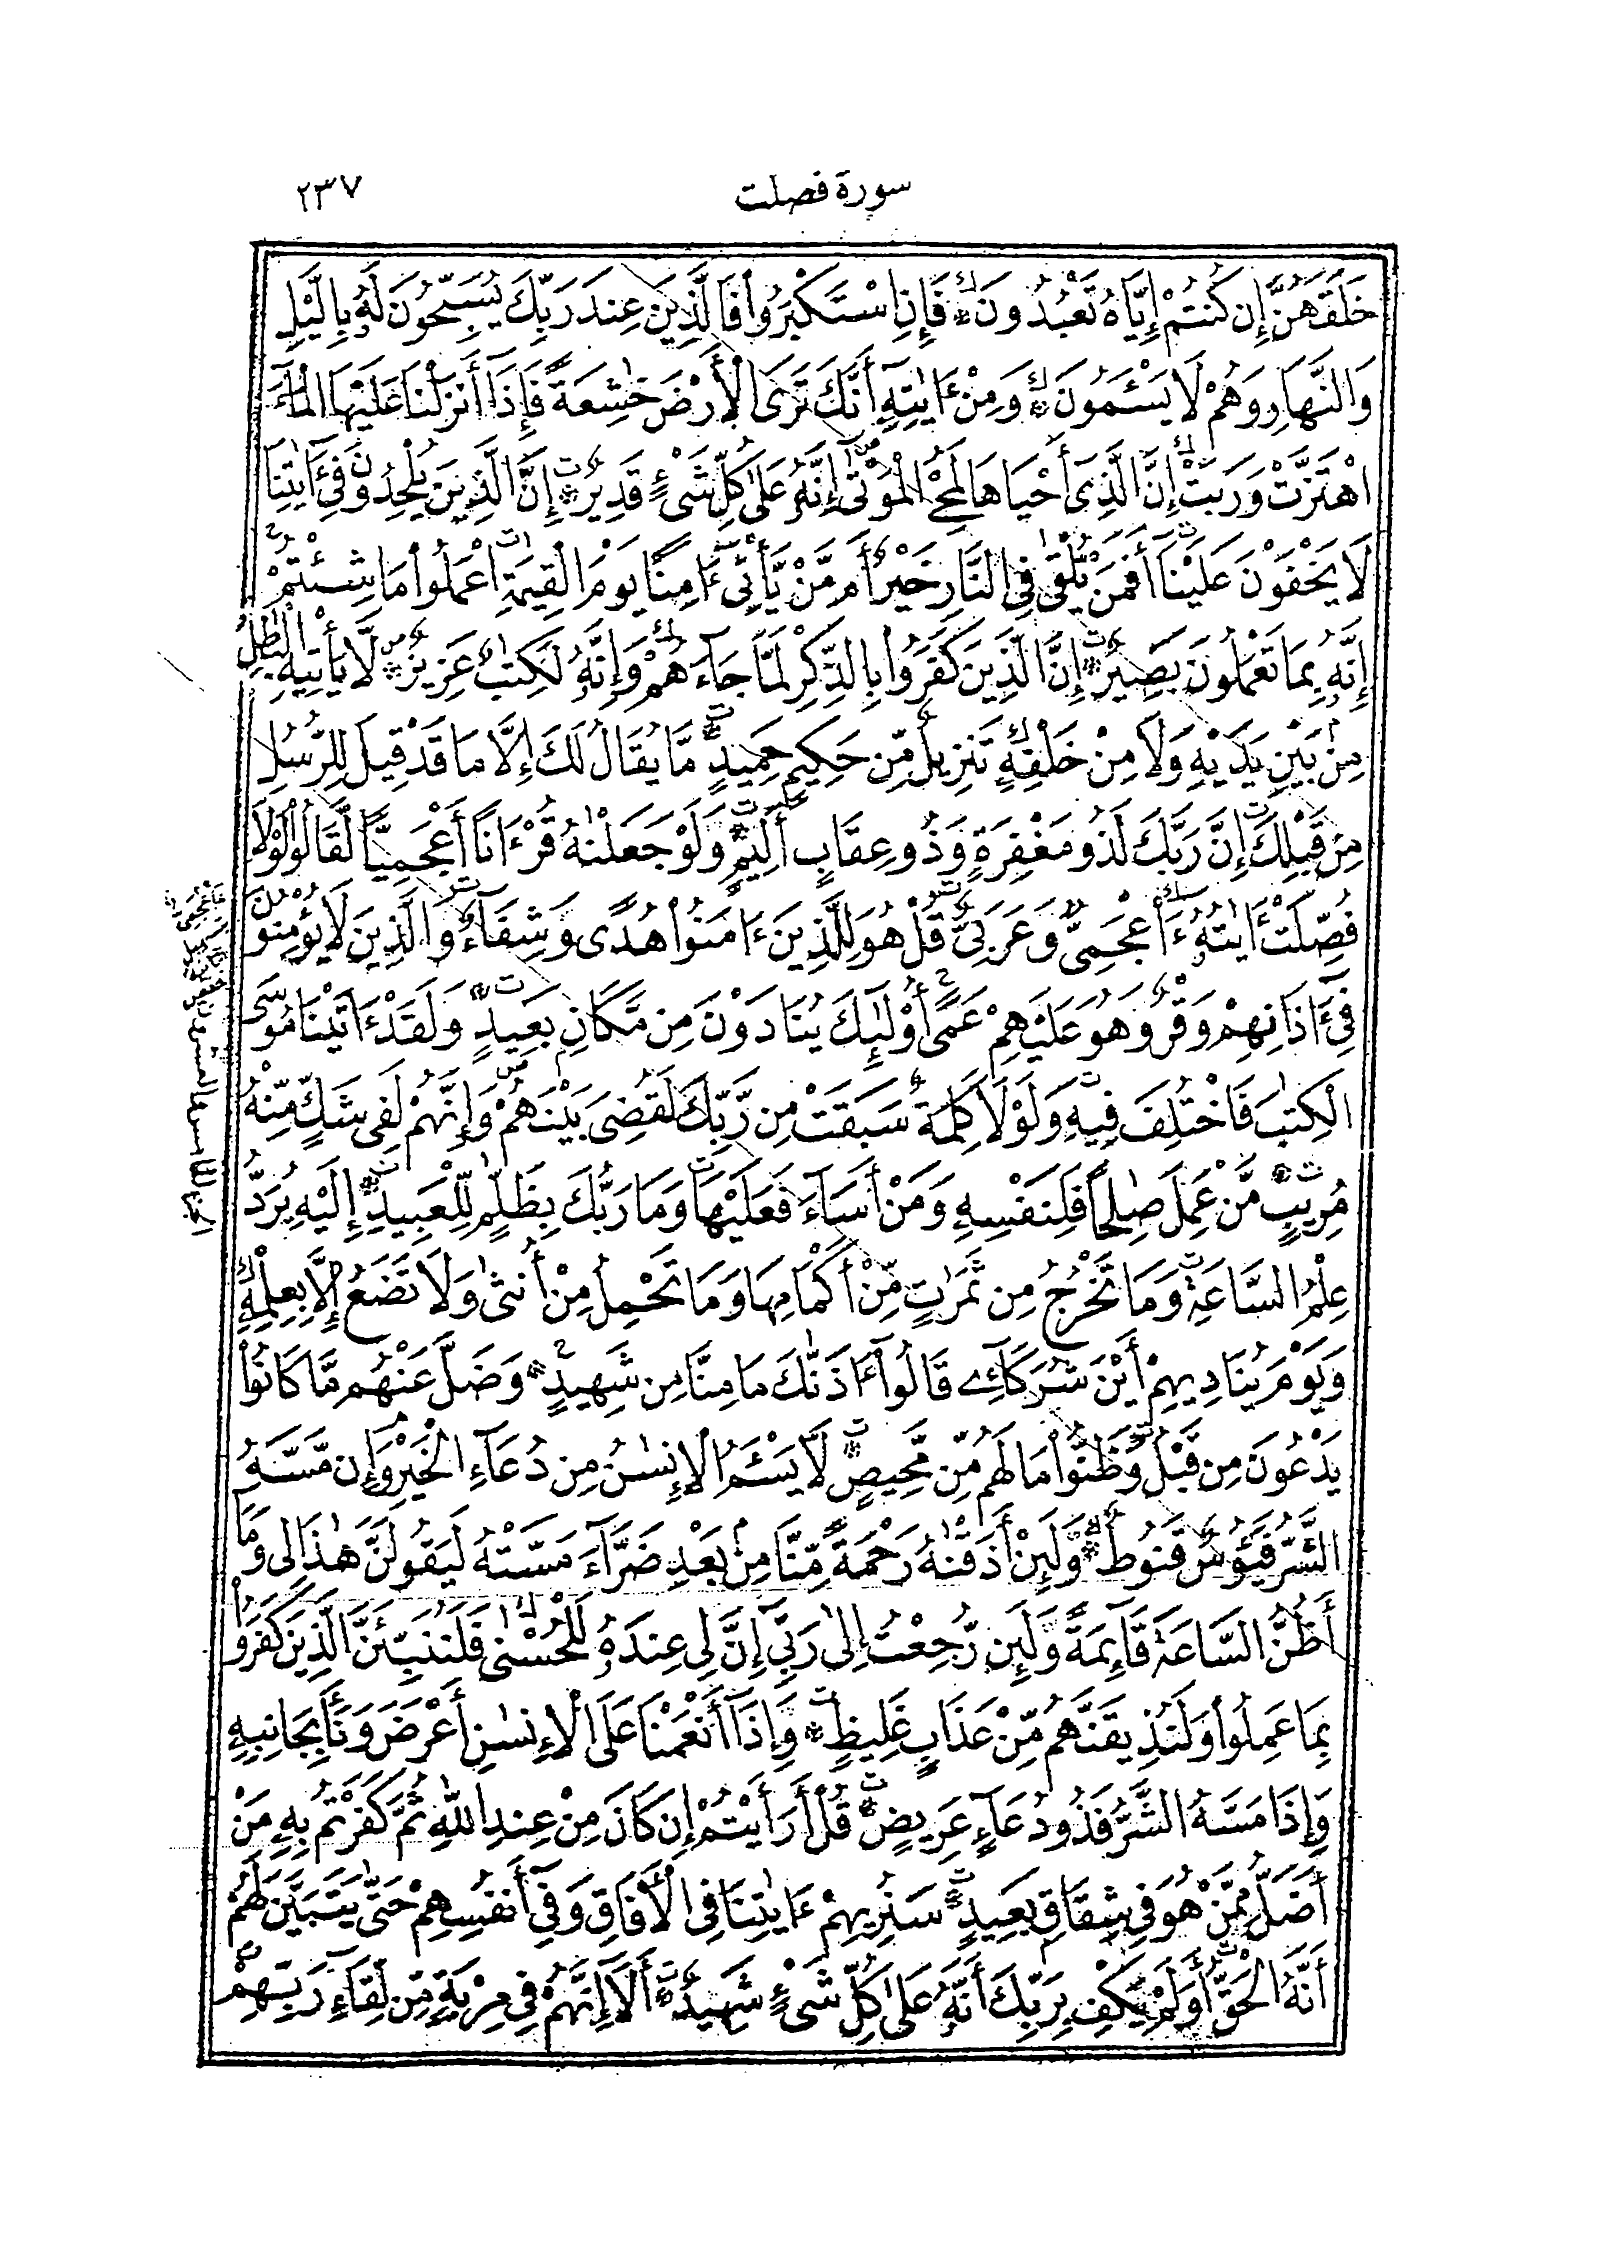 سورة فصلت
٢٣٧
خَلَقَهُنَّ إِن كُنتُمْ إِيَّاهُ تَعْبُدُونَ فَإِنِ اسْتَكْبَرُوا فَالَّذِينَ عِندَ رَبِّكَ يُسَبِّحُونَ لَهُ بِالَّيْلِ
وَالنَّهَارِ وَهُمْ لَا يَسْـَٔمُونَ وَمِنْ ءَايَٰتِهِ أَنَّكَ تَرَى الْأَرْضَ خَٰشِعَةً فَإِذَا أَنزَلْنَا عَلَيْهَا الْمَآءَ
اهْتَزَّتْ وَرَبَتْ إِنَّ الَّذِى أَحْيَاهَا لَمُحْىِ الْمَوْتَىٰ إِنَّهُ عَلَىٰ كُلِّ شَىْءٍ قَدِيرٌ إِنَّ الَّذِينَ يُلْحِدُونَ فِىٓ ءَايَٰتِنَا
لَا يَخْفَوْنَ عَلَيْنَا أَفَمَن يُلْقَىٰ فِى النَّارِ خَيْرٌ أَم مَّنْ يَأْتِىٓ ءَامِنًا يَوْمَ الْقِيَٰمَةِ اعْمَلُوا مَا شِئْتُمْ
إِنَّهُ بِمَا تَعْمَلُونَ بَصِيرٌ إِنَّ الَّذِينَ كَفَرُوا بِالذِّكْرِ لَمَّا جَآءَهُمْ وَإِنَّهُ لَكِتَٰبٌ عَزِيزٌ لَّا يَأْتِيهِ الْبَٰطِلُ
مِنْ بَيْنِ يَدَيْهِ وَلَا مِنْ خَلْفِهِ تَنزِيلٌ مِّنْ حَكِيمٍ حَمِيدٍ مَّا يُقَالُ لَكَ إِلَّا مَا قَدْ قِيلَ لِلرُّسُلِ
مِنْ قَبْلِكَ إِنَّ رَبَّكَ لَذُو مَغْفِرَةٍ وَذُو عِقَابٍ أَلِيمٍ وَلَوْ جَعَلْنَٰهُ قُرْءَانًا أَعْجَمِيًّا لَّقَالُوا لَوْلَا
فُصِّلَتْ ءَايَٰتُهُ ءَا۬عْجَمِىٌّ وَعَرَبِىٌّ قُلْ هُوَ لِلَّذِينَ ءَامَنُوا هُدًى وَشِفَآءٌ وَالَّذِينَ لَا يُؤْمِنُونَ
فِىٓ ءَاذَانِهِمْ وَقْرٌ وَهُوَ عَلَيْهِمْ عَمًى أُوْلَٰٓئِكَ يُنَادَوْنَ مِن مَّكَانٍ بَعِيدٍ وَلَقَدْ ءَاتَيْنَا مُوسَى
الْكِتَٰبَ فَاخْتُلِفَ فِيهِ وَلَوْلَا كَلِمَةٌ سَبَقَتْ مِن رَّبِّكَ لَقُضِىَ بَيْنَهُمْ وَإِنَّهُمْ لَفِى شَكٍّ مِّنْهُ
مُرِيبٍ مَّنْ عَمِلَ صَٰلِحًا فَلِنَفْسِهِ وَمَنْ أَسَآءَ فَعَلَيْهَا وَمَا رَبُّكَ بِظَلَّٰمٍ لِّلْعَبِيدِ إِلَيْهِ يُرَدُّ
عِلْمُ السَّاعَةِ وَمَا تَخْرُجُ مِن ثَمَرَٰتٍ مِّنْ أَكْمَامِهَا وَمَا تَحْمِلُ مِنْ أُنثَىٰ وَلَا تَضَعُ إِلَّا بِعِلْمِهِ
وَيَوْمَ يُنَادِيهِمْ أَيْنَ شُرَكَآءِى قَالُوٓا ءَاذَنَّٰكَ مَا مِنَّا مِن شَهِيدٍ وَضَلَّ عَنْهُم مَّا كَانُوا
يَدْعُونَ مِن قَبْلُ وَظَنُّوا مَا لَهُم مِّن مَّحِيصٍ لَّا يَسْـَٔمُ الْإِنسَٰنُ مِن دُعَآءِ الْخَيْرِ وَإِن مَّسَّهُ
الشَّرُّ فَيَـُٔوسٌ قَنُوطٌ وَلَئِنْ أَذَقْنَٰهُ رَحْمَةً مِّنَّا مِنْ بَعْدِ ضَرَّآءَ مَسَّتْهُ لَيَقُولَنَّ هَٰذَا لِى وَمَآ
أَظُنُّ السَّاعَةَ قَآئِمَةً وَلَئِن رُّجِعْتُ إِلَىٰ رَبِّىٓ إِنَّ لِى عِندَهُ لَلْحُسْنَىٰ فَلَنُنَبِّئَنَّ الَّذِينَ كَفَرُوا
بِمَا عَمِلُوا وَلَنُذِيقَنَّهُم مِّنْ عَذَابٍ غَلِيظٍ وَإِذَآ أَنْعَمْنَا عَلَى الْإِنسَٰنِ أَعْرَضَ وَنَـَٔا بِجَانِبِهِ
وَإِذَا مَسَّهُ الشَّرُّ فَذُو دُعَآءٍ عَرِيضٍ قُلْ أَرَأَيْتُمْ إِن كَانَ مِنْ عِندِ اللَّهِ ثُمَّ كَفَرْتُم بِهِ مَنْ
أَضَلُّ مِمَّنْ هُوَ فِى شِقَاقٍ بَعِيدٍ سَنُرِيهِمْ ءَايَٰتِنَا فِى الْأَفَاقِ وَفِىٓ أَنفُسِهِمْ حَتَّىٰ يَتَبَيَّنَ لَهُمْ
أَنَّهُ الْحَقُّ أَوَلَمْ يَكْفِ بِرَبِّكَ أَنَّهُ عَلَىٰ كُلِّ شَىْءٍ شَهِيدٌ أَلَآ إِنَّهُمْ فِى مِرْيَةٍ مِّن لِّقَآءِ رَبِّهِمْ